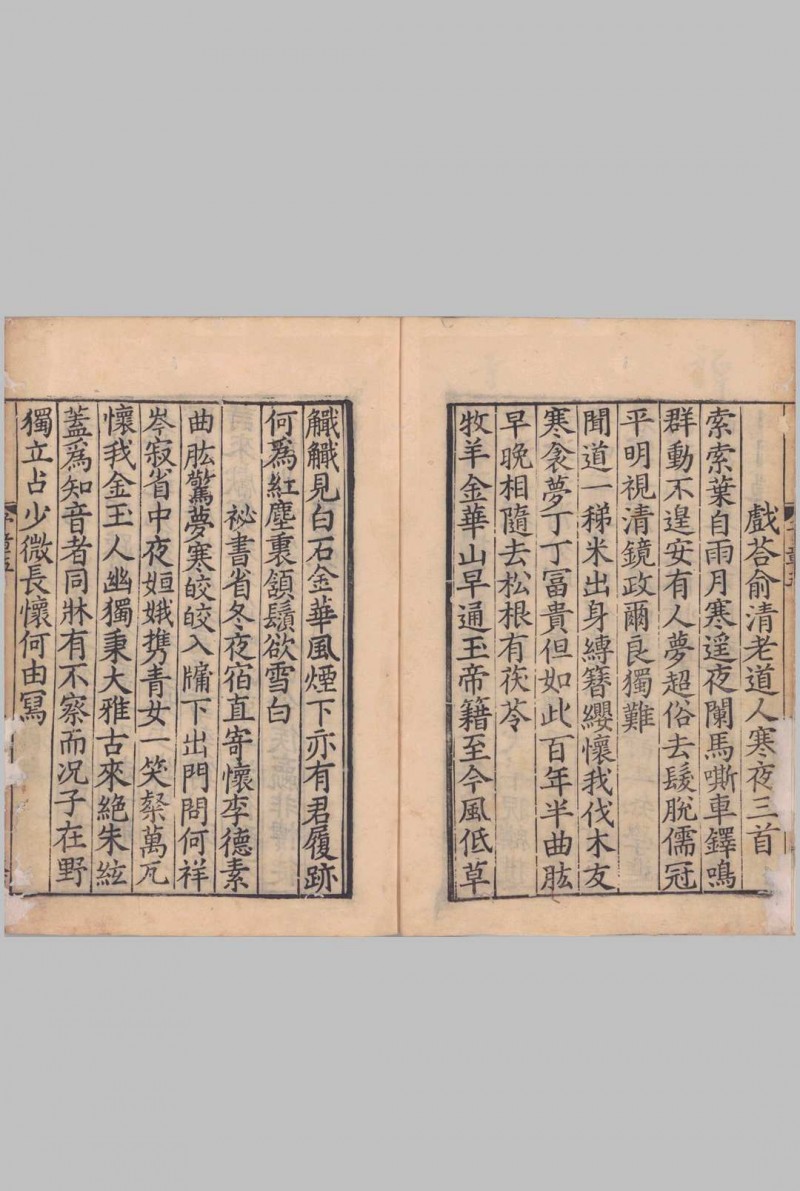 戲荅俞清老道人寒夜三首
索索葉自雨月寒遥夜闌馬嘶車鐸鳴
群動不遑安有人夢超俗去髮脫儒冠
平明視清鏡政爾良獨難
聞道一稊米出身縛簪纓懷我伐木友
寒衾夢丁丁冨貴但如此百年半曲肱
早晚相隨去松根有茯苓
牧羊金華山早通玉帝籍至今風低草
觽觽見白石金華風煙下亦有君履跡
何爲紅塵裏頷鬚欲雪白
祕書省冬夜宿直寄懷李德素
曲肱驚夢寒皎皎入牖下出門問何祥
岑寂省中夜姮娥携青女一笑粲萬瓦
懷我金玉人幽獨秉大雅古來絶朱絃
蓋爲知音者同牀有不察而况子在野
獨立占少微長懷何由冩